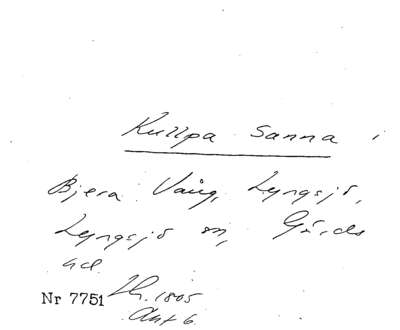 Kullpa Sanna i
Bjera Vång, Lyngsjö,
Lyngsjö sn, Gärds
hd.
Nr 7751 Lh. 1805
Akt 6